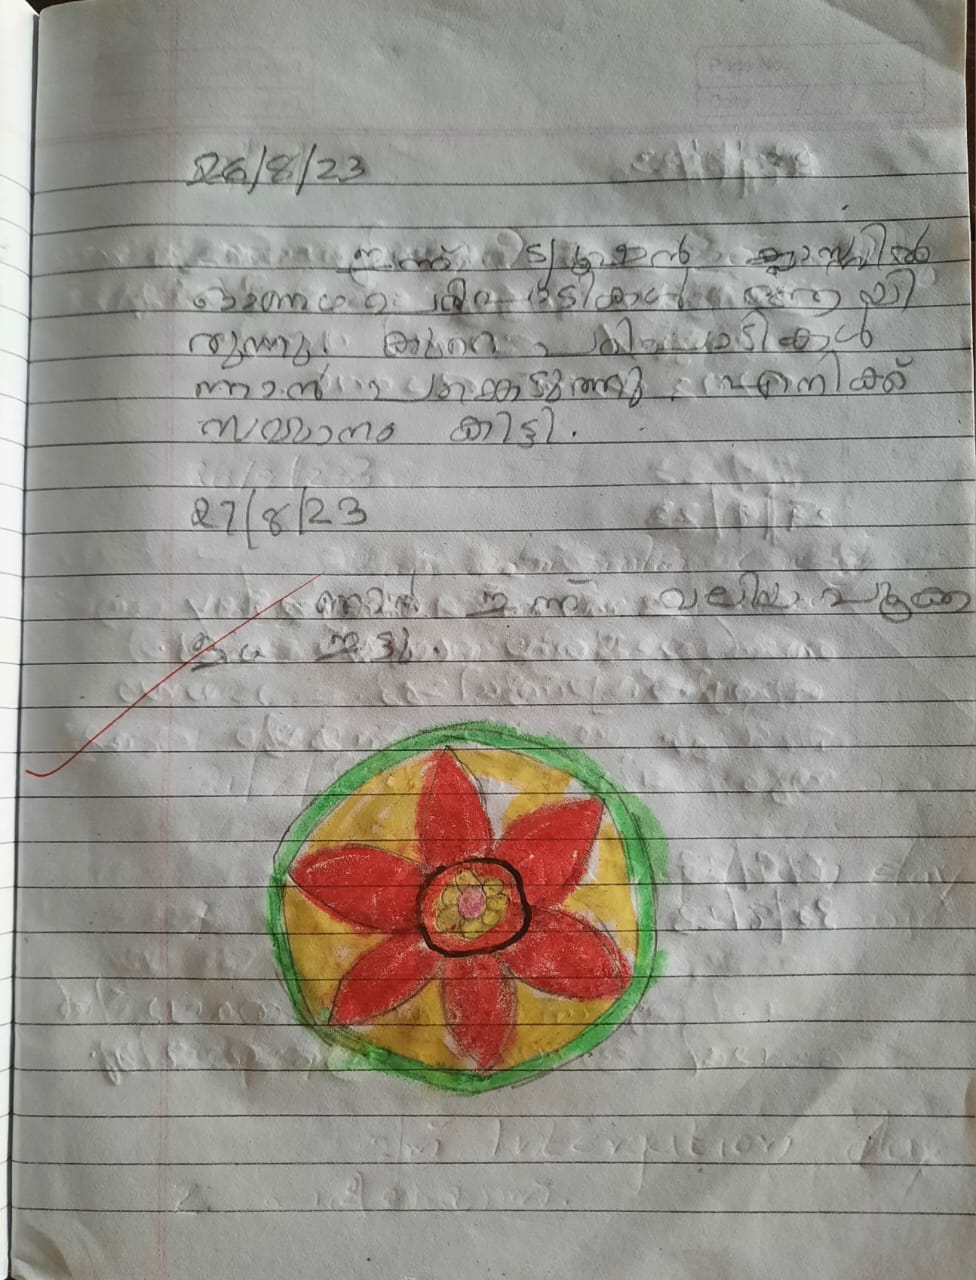 26/8/23
ഇന്ന് ട്യൂഷൻ ക്ലാസ്സിൽ
ഓണാഘോഷ പരിപാടികൾ ഉണ്ടായി
രുന്നു. കുറെ പരിപാടികൾ
ഞാൻ പങ്കെടുത്തു. എനിക്ക്
സമ്മാനം കിട്ടി.
27/8/23
ഞാൻ ഇന്ന് വലിയ പൂക്ക
ളം ഇട്ടു.